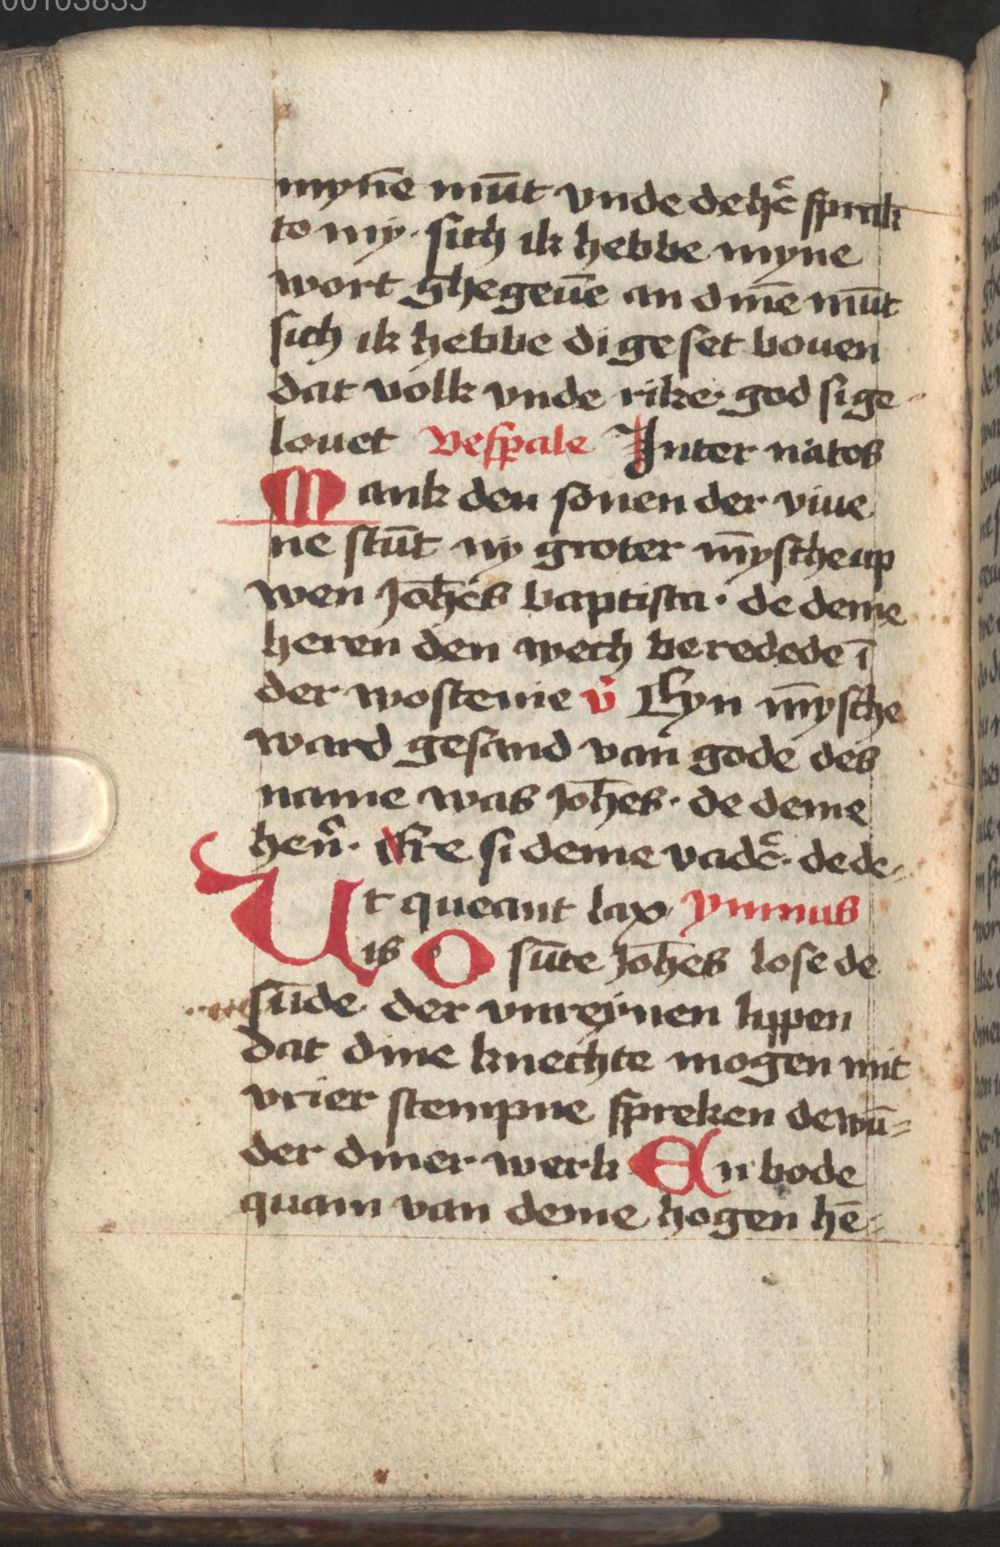 00103835
myn̄e mūt vnde de hē sprak
to my · sich ik hebbe myne
wort ghegeūe an dinē mūt
sich ik hebbe di geset bouen
dat volk vnde rike· god si ge
louet vesp̄ale Inter natos
Mank den sonen der viue
ne stūt ny groter m̄ysche up
wen Joh̄es baptista · de deme
heren den wech beredede ī
der wostenie v̄ Eyn m̄ysche
ward gesand van gode des
name was Joh̄es · de deme
hen̄ · Ere si deme vadē · de de
Ut queant lax ymnus
is O sūte Joh̄es lose de
sūde der vnreynen lyppen
dat dine knechte mogen mit
vrier stempne spreken de wū=
der diner werk En bode
quam van deme hogen hē=